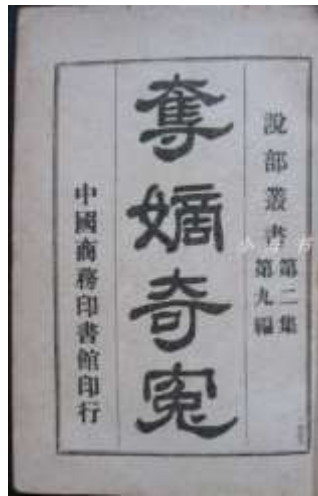 說部叢書
第二集
第九編
奪嫡奇冤
中國商務印書館印行